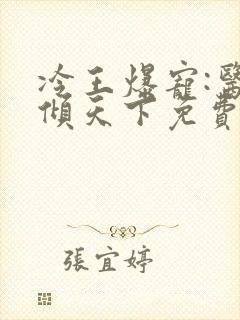 冷王爆寵:醫
傾天下免費
張宜婷